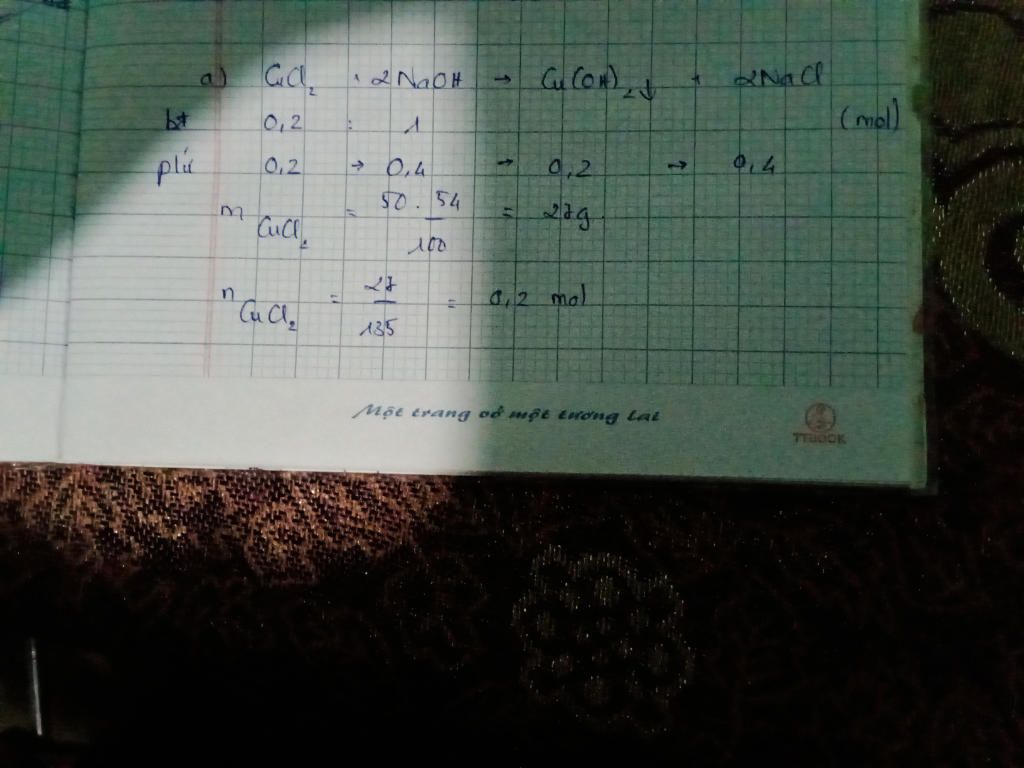 a) CuCl₂ + 2NaOH → Cu(OH)₂↓ + 2NaCl
bđ 0,2 : 1 (mol)
pứ 0,2 → 0,4 → 0,2 → 0,4
m CuCl₂ = 50.54/100 = 27g
n CuCl₂ = 27/135 = 0,2 mol
Một trang vở một tương lai
TTBOOK